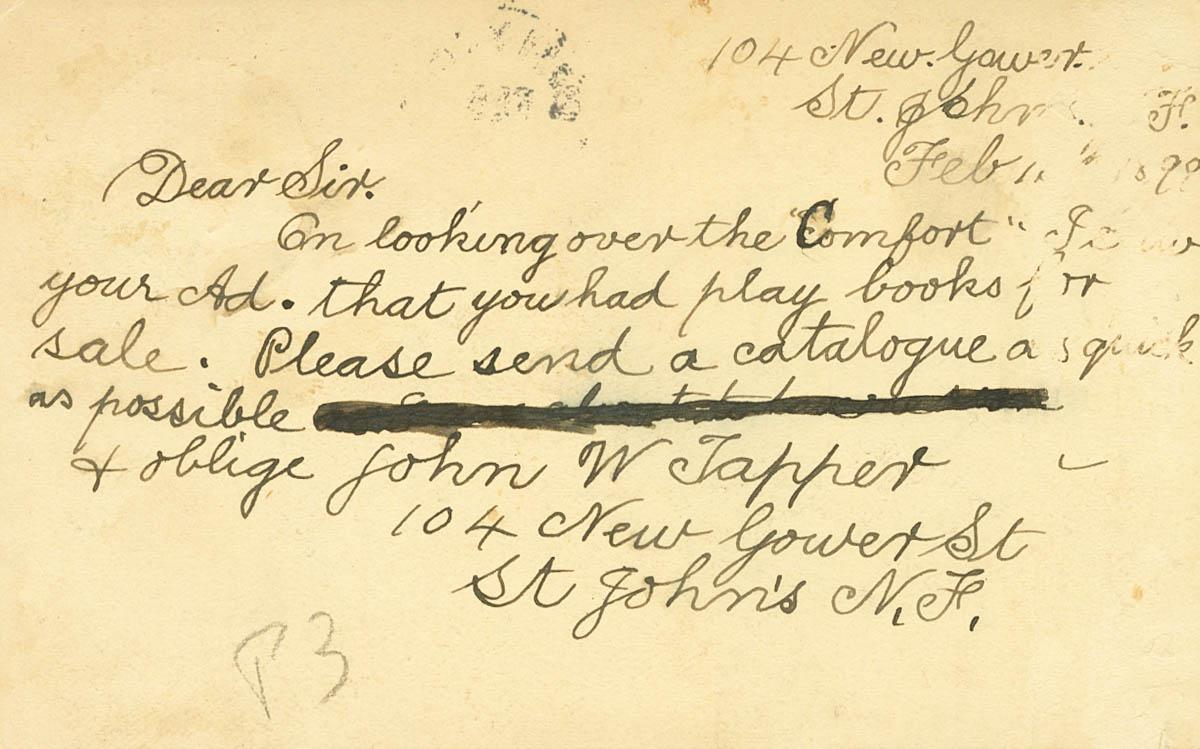 104 New. Gower.
St. John F.
Feb 1899
Dear Sir.
On looking over the "Comfort"
your Ad. that you had play books for
sale. Please send a catalogue as quick
as possible
& oblige John W Tapper
104 New Gower St
St John's N.F.
P3